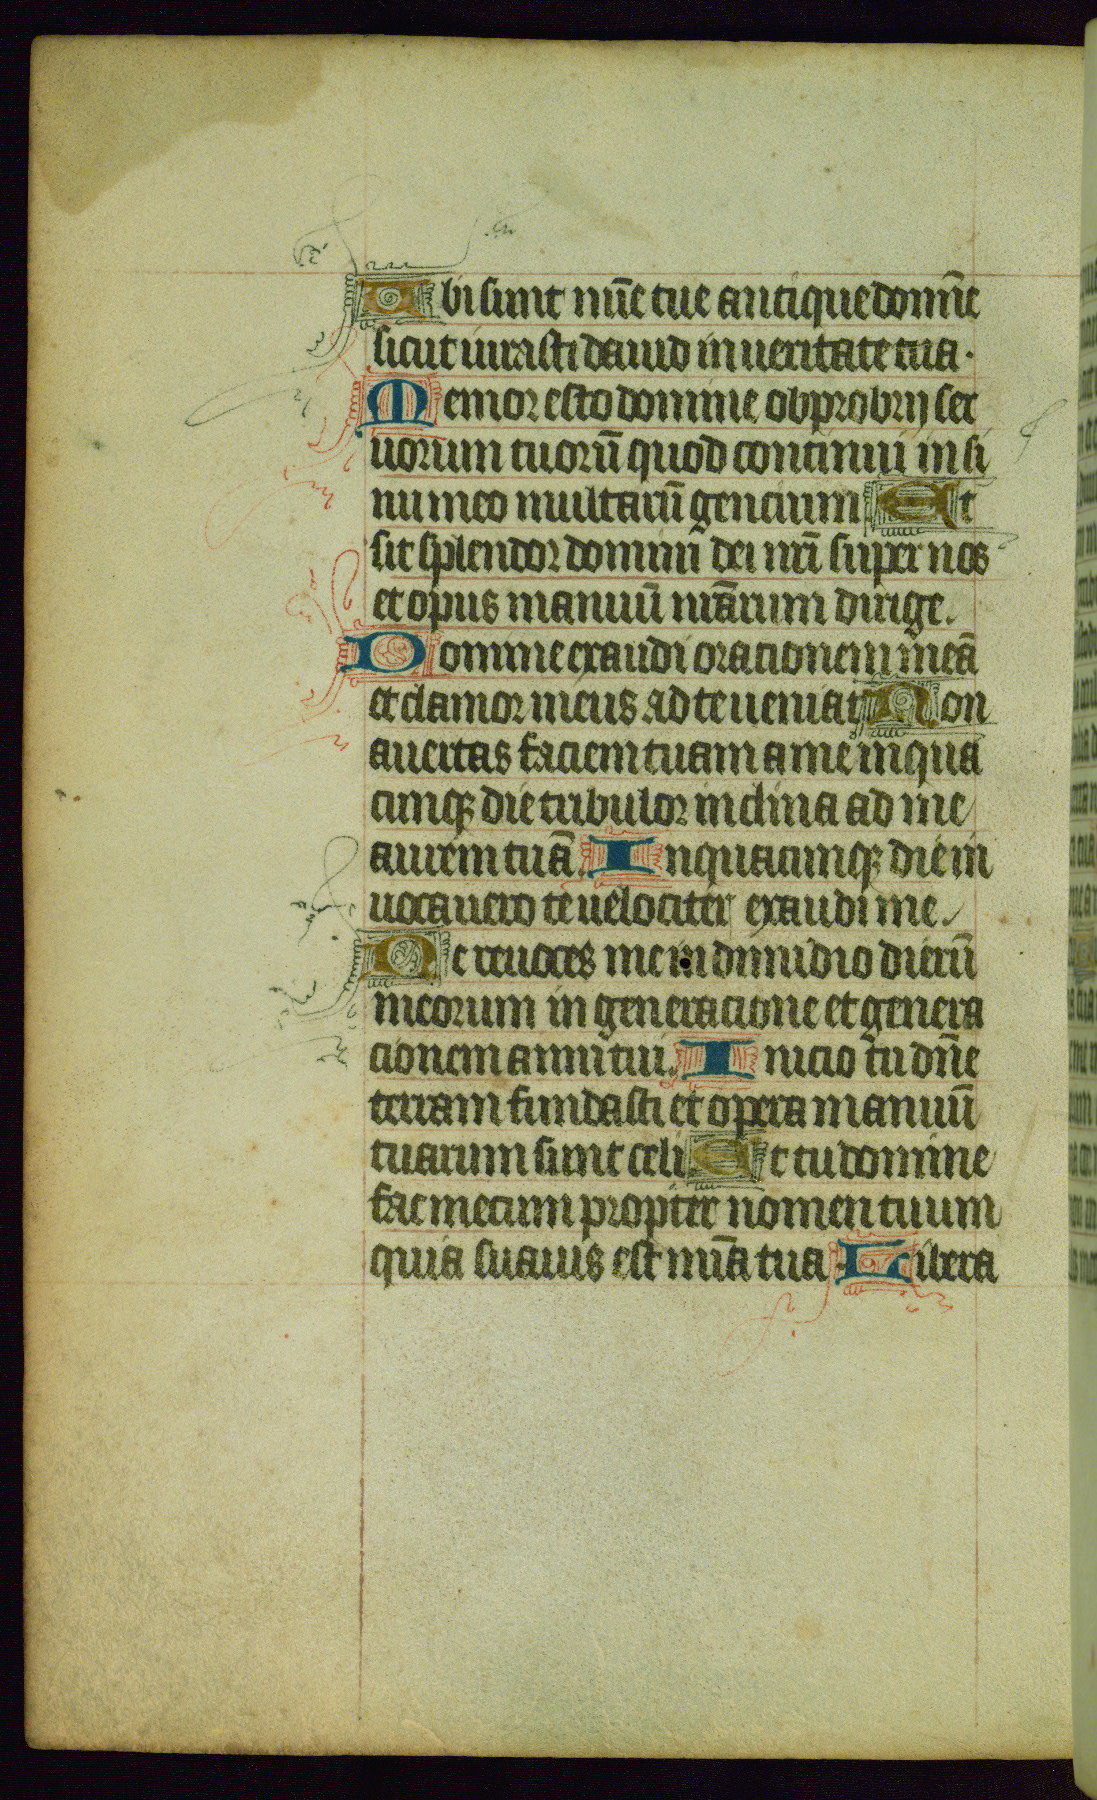 Ubi sunt mīe tue antique domīe
sicut iurasti dauid in ueritate tua.
Memor esto domine obprobrij ser
uorum tuorū quod continui in si
nu meo multarū gencium Et
sit splendor domini dei nrī super nos
et opus manuū nrārum dirige.
Domine exaudi orationem meā
et clamor meus ad te ueniat Non
auertas faciem tuam a me in qua
cumqꝫ die tribulor inclina ad me
aurem tuā. In quacumqꝫ die in
uocauero te uelociter exaudi me.
Ne reuoces me in dimidio dierū
meorum in generacione et genera
cionem anni tui. Inicio tu dn̄e
terram fundasti et opera manuū
tuarum sunt celi Et tu domine
fac mecum propter nomen tuum
quia suauis est mīa tua Libera